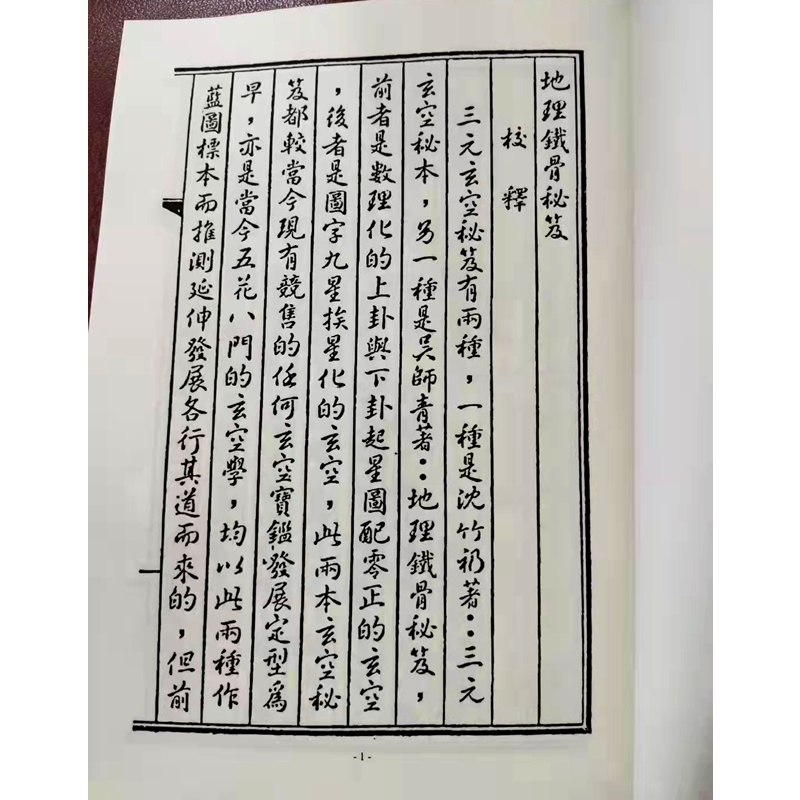 地理鐵骨秘笈
校釋
三元玄空秘笈有兩種，一種是沈竹礽著：三元
玄空秘本，另一種是吳師青著：地理鐵骨秘笈，
前者是数理化的上卦與下卦起星圖配零正的玄空
，後者是圖字九星挨星化的玄空，此兩本玄空秘
笈都較當今現有競售的任何玄空寶鑑發展定型為
早，亦是當今五花八門的玄空學，均以此兩種作
藍圖標本而推測延伸發展各行其道而來的，但前
-1-